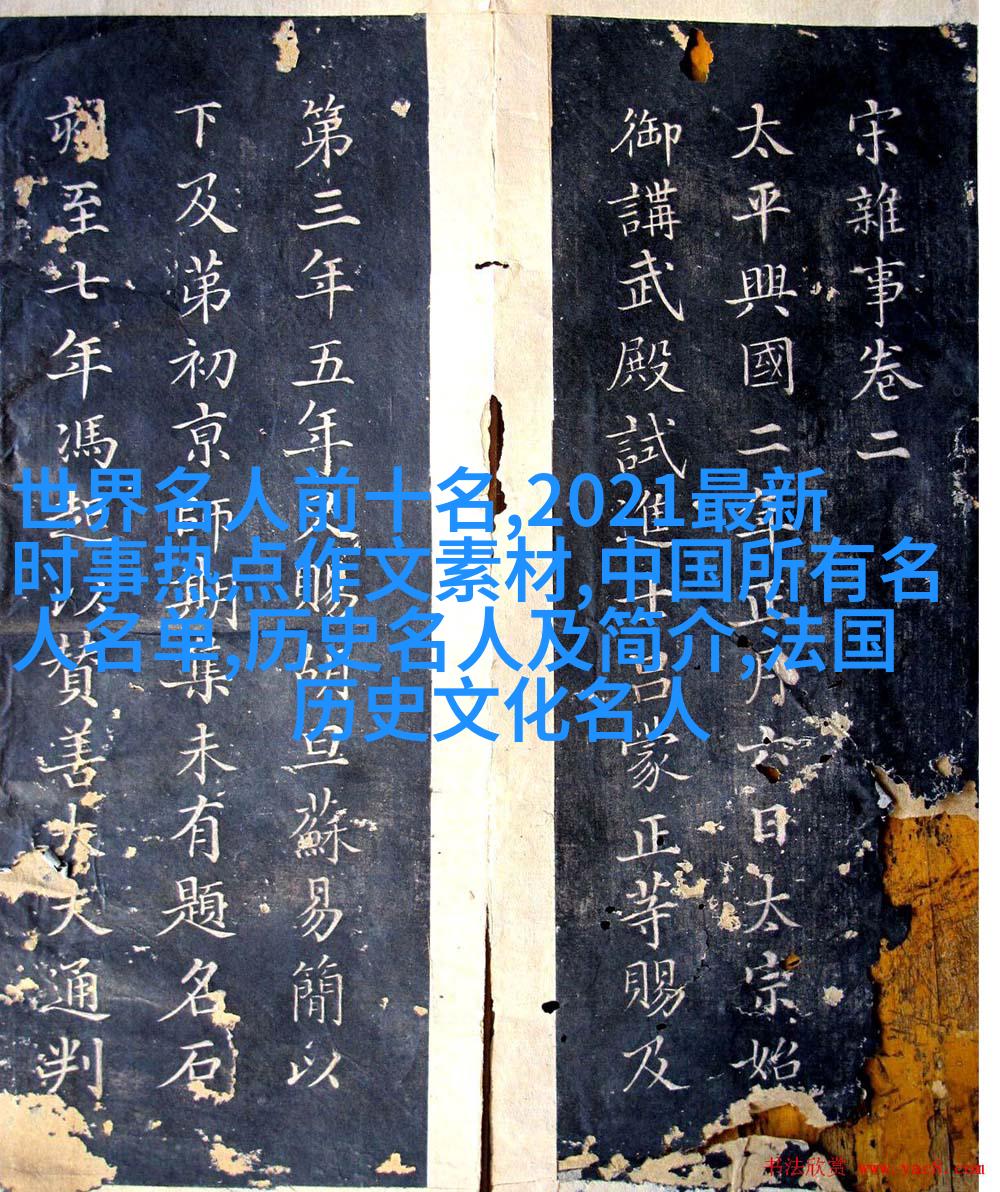 世界名人前十名,2021最新
时事热点作文素材,中国所有名
人名单,历史名人及简介,法国
历史文化名人
宋雜事卷二
太平興國二年正月六日太宗始
御講武殿試進士呂蒙正等賜及
第三年五年賜胡旦蘇易簡以
下及第初京師期集未有題名石
至七年馮以贊善大夫通判
书法欣赏 www.yac8.com